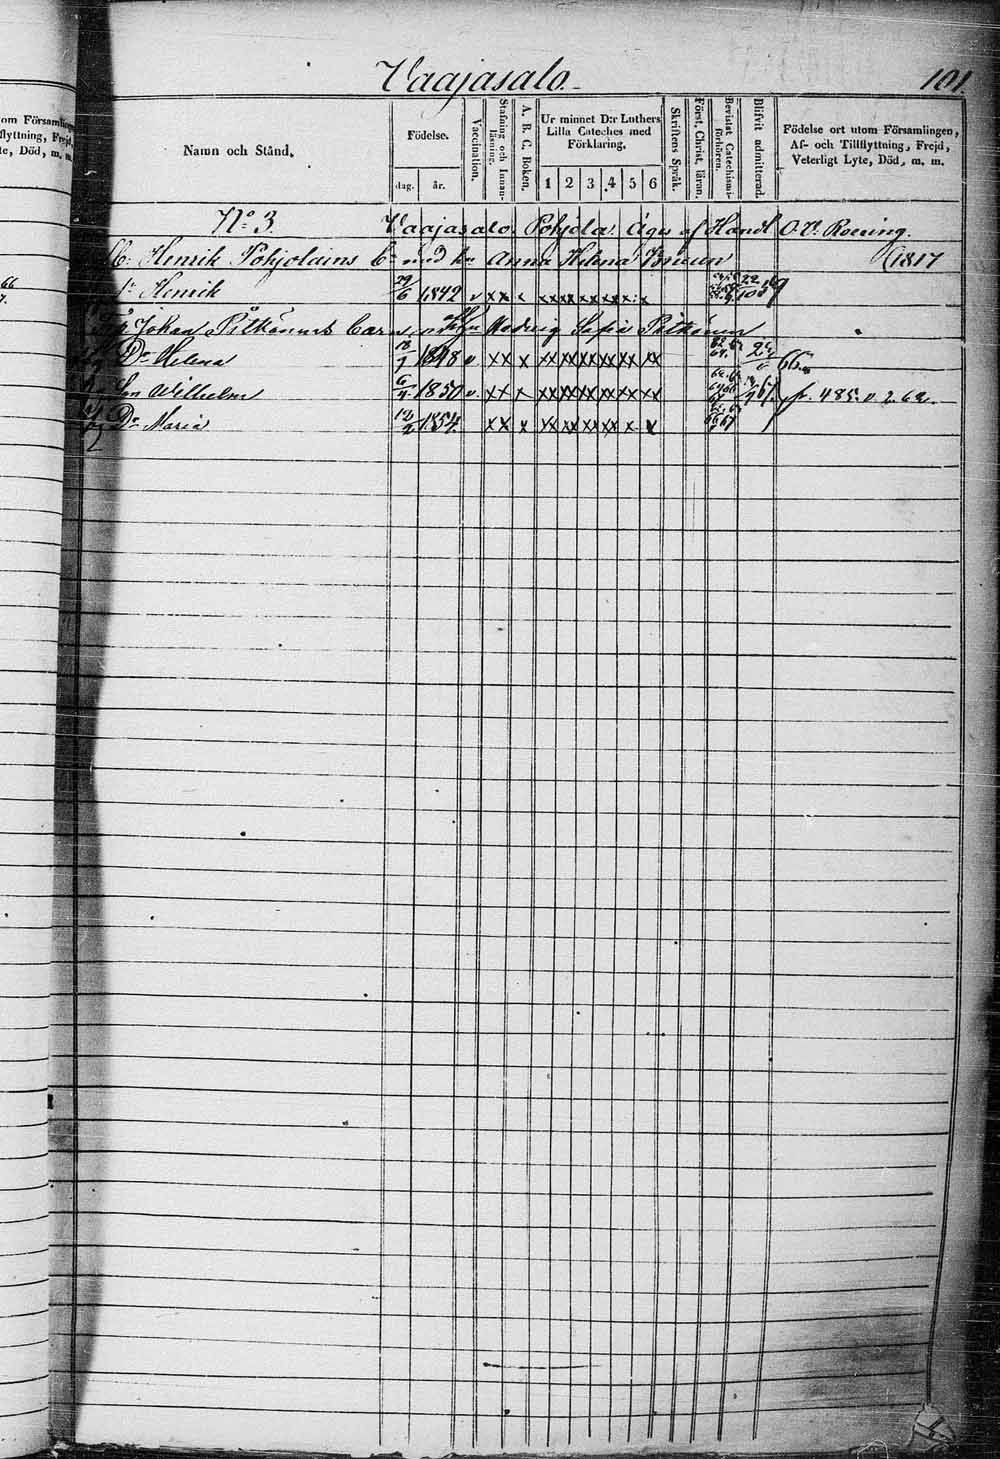 Vaajasalo. 101
om Församlingen
flyttning, Frejd,
te, Död, m. m.
Namn och Stånd.
Födelse.
dag. år.
Vaccination.
Stafning och Innanläsning.
A. B. C. Boken.
Ur minnet D:r Luthers Lilla Cateches med Förklaring.
1 2 3 4 5 6
Skriftens Språk.
Först. Christ. läran.
Bevistat Catechismiförhören.
Blifvit admitterad.
Födelse ort utom Församlingen, Af- och Tillflyttning, Frejd, Veterligt Lyte, Död, m. m.
N:o 3. Vaajasalo Pohjola. Äges af Handl. O. V. Roering.
Henrik Pohjolains med hu Anna Helena (1817
66 Henrik 29/6 1842 v xx x xx xx xx xx x x 22/10 59
7.
Johan Pitkänens Hedvig Sofia Pitkänen
D:r Helena 13/1 1848 v. xx x xx xx xx xx xx xx 66
Son Wilhelm 6/4 1850 v. xx x xx xx xx xx xx xx 67. fr. 485.
D:r Maria 12/2 1854. xx x xx xx xx xx x x 67